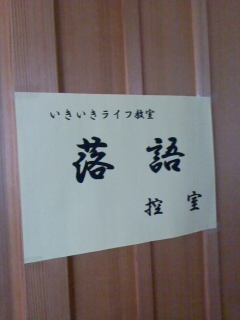 いきいきライフ教室
落語
控室